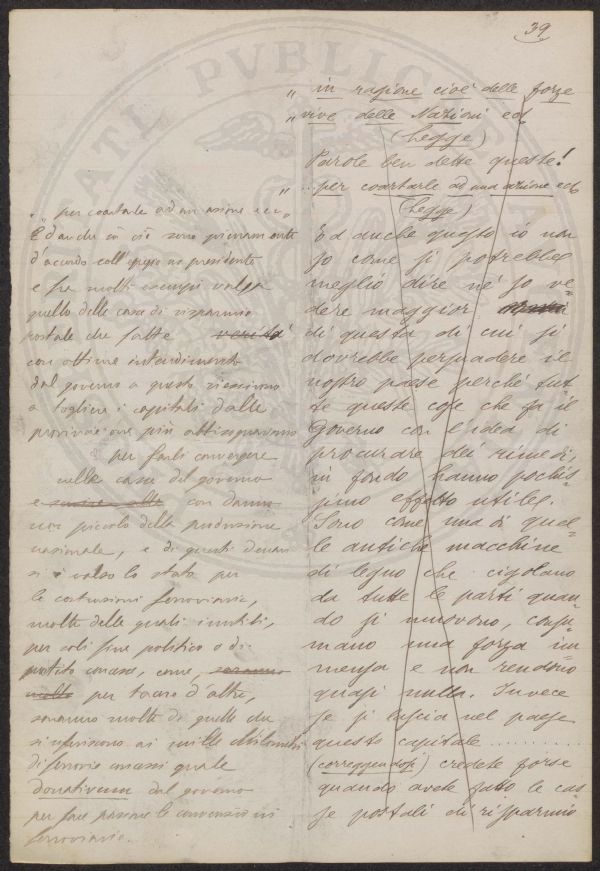 39
„ in ragione cioè delle forze
„ vive delle Nazioni ecc
(Legge)
Parole ben dette queste!
„ ...per coartarle ad una azione ecc
(Legge)
Ed anche questo io non
so come si potrebbe
meglio dire nè so ve-
dere maggior
di questa di cui si
dovrebbe persuadere il
nostro paese perchè tut-
te queste cose che fa il
Governo con l'idea di
procurare dei rimedi,
in fondo hanno pochis-
simo effetto utile.
Sono come una di quel-
le antiche macchine
di legno che cigolano
da tutte le parti quan-
do si muovono, consu-
mano una forza im-
mensa e non rendono
quasi nulla. Invece
se si lascia nel paese
questo capitale ..........
(correggendosi) credete forse
quando avete fatto le cas-
se postali di risparmio
„ per coartarle ad un azione ecc „
Ed anche in ciò sono pienamente
d'accordo coll' egregio presidente
e fra molti esempi valga
quello delle casse di risparmio
postale che fatte verità
con ottimo intendimento
dal governo a questo riescirono
a togliere i capitali dalle
provincie ove più abbisognavano
per farli convergere
nelle casse del governo
e con danno
non piccolo della produzione
nazionale, e di questi denari
si è valso lo stato per
le costruzioni ferroviarie,
molte delle quali inutili,
per soli fine politico o di
partito, come,
molto per tacere d'altre,
saranno molte di quelle che
si riferiscono ai mille chilometri
di ferrovie quale
donativum dal governo
per fare passare le convenzioni
ferroviarie.